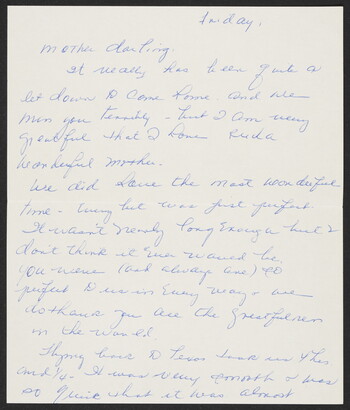 Friday,
Mother darling.
It really has been quite a
let down to come home and we
miss you terribly - but I am very
grateful that I have such a
wonderful mother.
We did have the most wonderful
time - Every bit was just perfect.
It wasn't nearly long enough but I
don't think it ever would be.
You were (and always are) so
perfect to us in every way & we
do thank you all the
in the world.
Flying back to Texas took us 4 hrs
and 1/4. It was very smooth & was
so quick that it was almost